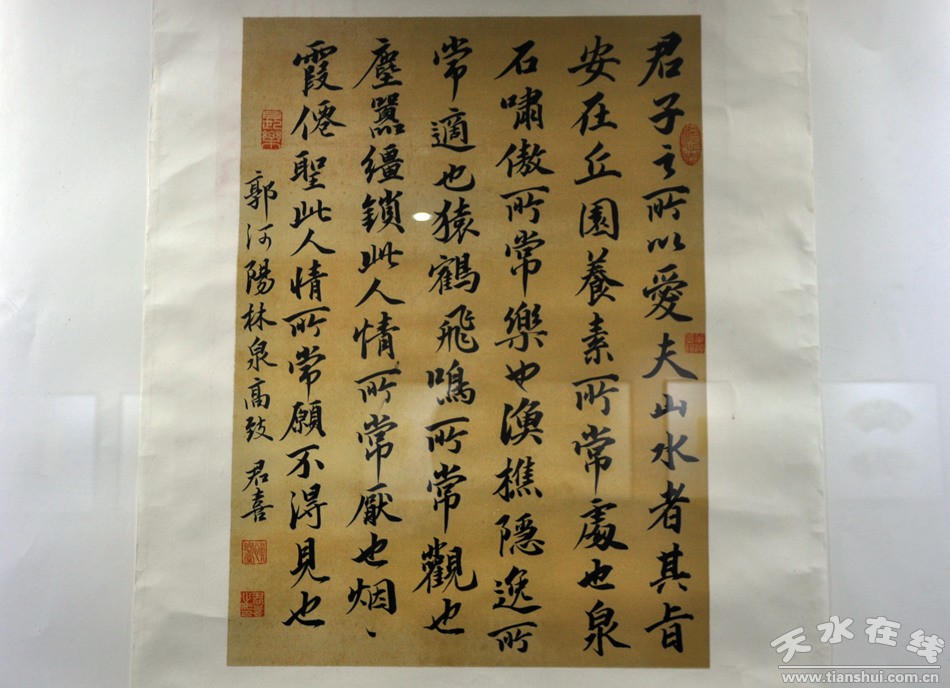 君子之所以愛夫山水者其旨
安在丘園養素所常處也泉
石嘯傲所常樂也漁樵隱逸所
常適也猿鶴飛鳴所常觀也
塵囂繮鎖此人情所常厭也烟、
霞僊聖此人情所常願不得見也
郭河陽林泉高致 君喜
天水在线
www.tianshui.com.cn